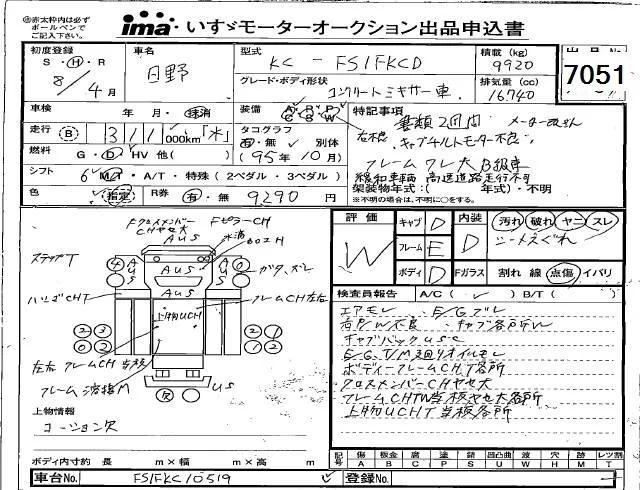 赤太枠内は必ず
ボールペンで
ご記入下さい。
ima いすゞモーターオークション出品申込書
初度登録 車名 型式 積載(kg)
S・H・R 日野 KC - FS1FKCD 9920
8/4月 グレード・ボディ形状 排気量(cc)
コンクリートミキサー車 16740
7051
車検 年・月・抹消 装備 A/C P/S P/W 特記事項
書類2回問 メーター改ざん
走行 B 311 000km「不」 タコグラフ 有・無 別体
左不良 キャブチルトモーター不良
燃料 G・D・HV 他( ) (95年10月)
フレームワレ大 B級車
シフト 6 MT・A/T・特殊(2ペダル・3ペダル)
緩和車輌 高速道路走行不可
色 (指定) R券 有・無 9290 円
架装物年式:( 年式)・不明
※不明の場合は、不明に○をする。
FクロスメンバーCHヤセ大 FピラーCH
AUS
ステップT
AUS
AUS
ガタ、ズレ
フレームCH左右
上物UCH
左右フレームCH当板
フレーム溶接M
US
上物情報
コーション欠
評価 キャブ D 内装 汚れ 破れ ヤニ スレ
W フレーム E D シートえぐれ
ボディ D Fガラス 割れ 線 点傷 イバリ
検査員報告 A/C( ✓ ) B/T( )
エアモレ E/Gブレ
右戸/W不良 キャブ各所W
キャブバックUSC
E/G、T/M廻りオイルモレ
ボディーフレームCHT各所
クロスメンバーCHヤセ大
フレームCHTW当板ヤセ大各所
上物UCHT当板各所
記号 傷 板金 腐 塗 錆 凹凸曲 波 穴 跡 レツ割
A B C P S U W H M T
ボディ内寸約 長 m×幅 m×高 m
車台No. FS1FKC/0519 登録No.